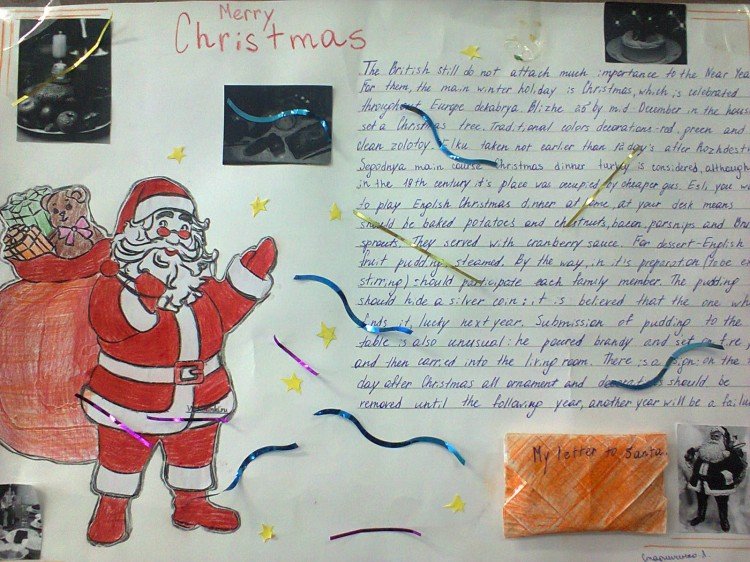 Merry
Christmas
The British still do not attach much importance to the New Year
For them, the main winter holiday is Christmas, which is celebrated
throughout Europe dekabrya. Blizhe 25 by mid-December in the house
set a Christmas tree. Traditional colors decorations-red, green and
olean zolotoy. Elku taken not earlier than 12 day's after Rozhdest
Segodnya main course Christmas dinner turkey is considered, although
in the 18th century it's place was occupied by cheaper gus. Esli, you
to play English Christmas dinner at home, at your desk means
should be baked potatoes and chestnuts, bacon, parsnips and
sprouts. They served with cranberry sauce. For dessert-English
fruit pudding, steamed. By the way, in it's preparation
stirring) should participate each family member. The pudding
should hide a silver coin: it is believed that the one
finds it, lucky next year. Submission of pudding to the
table is also unusual: he poured brandy and set fire
and then carried into the living room. There is a sign: on the
day after Christmas all ornament and decorations should be
removed until the following year, another year will be a
My letter to Santa.